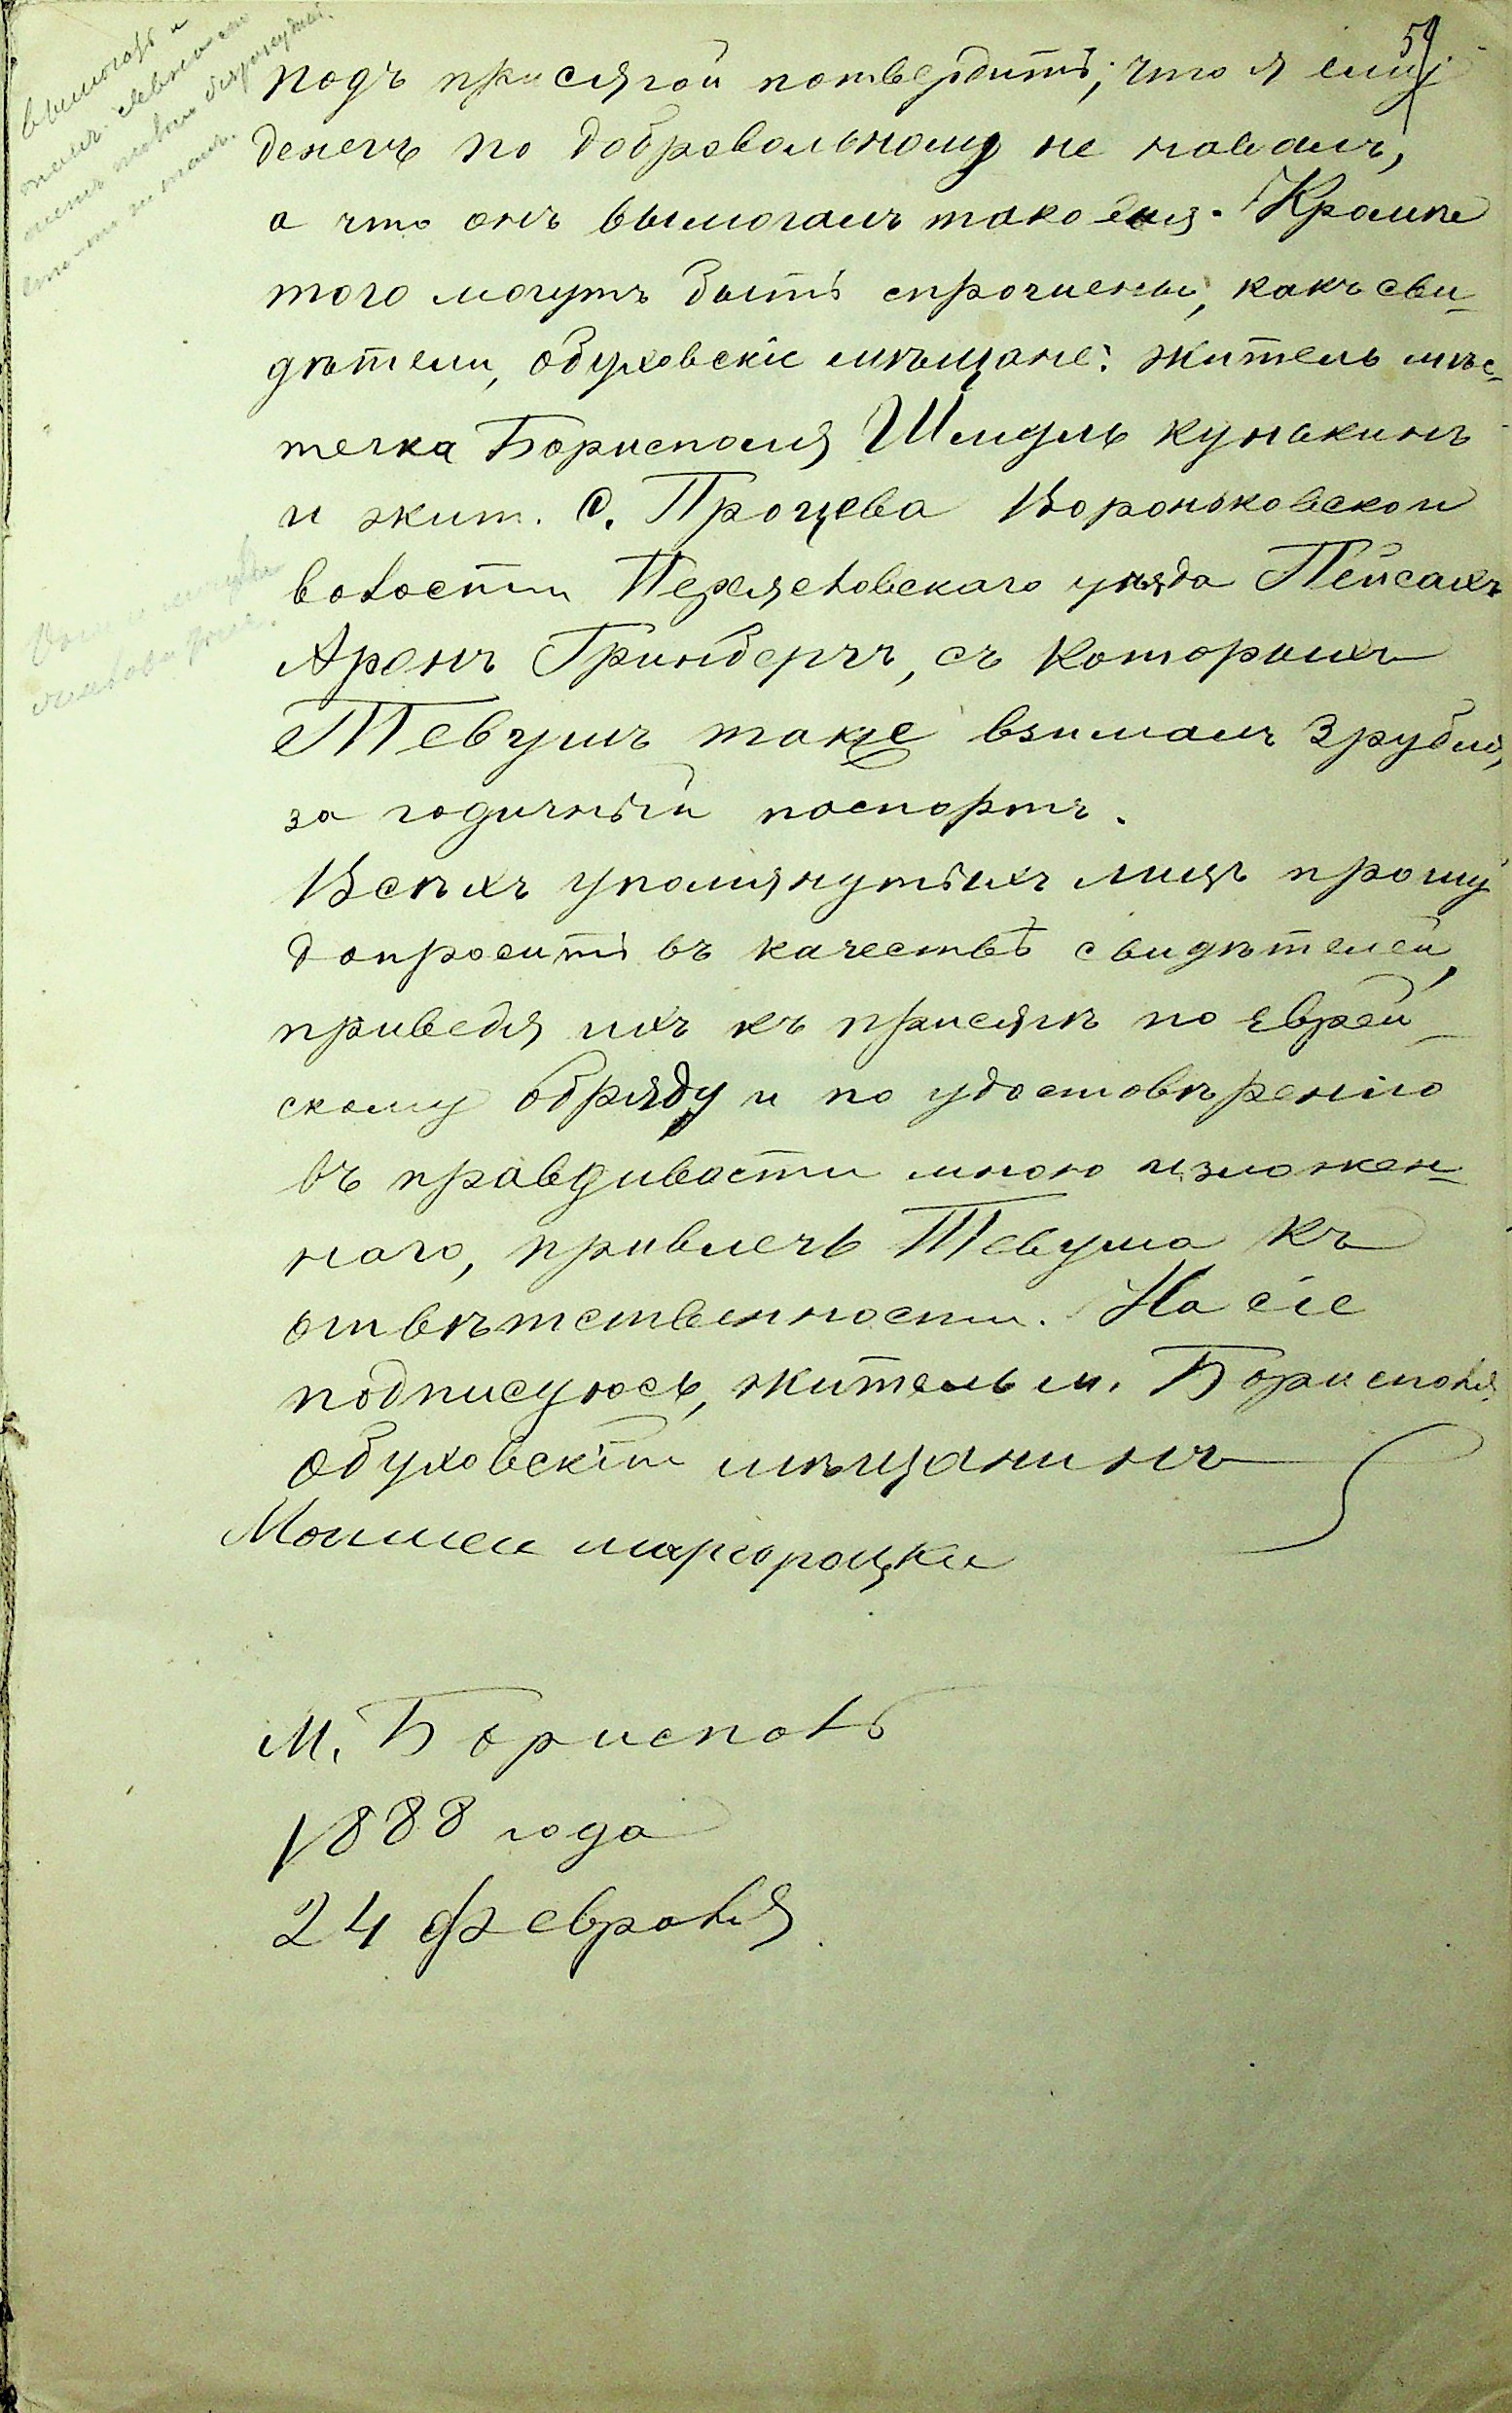 59
подъ присягой потвердитъ, что я ему
денегъ по добровольному не давалъ,
а что онъ вымогалъ таковыя. Кромѣ
того могутъ быть спрошены, какъ сви-
дѣтели, обуховскіе мѣщане: житель мѣс-
течка Борисполя Шмуль Кунькинъ
и жит. с. Процева Вороньковской
волости Переяславскаго уѣзда Пейсахъ
Аронъ Гринбергъ, съ которыхъ
Тевушъ также взималъ 3 рубля,
за годичный паспортъ.
Всѣхъ упомянутыхъ лицъ прошу
допросить въ качествѣ свидѣтелей,
приведя ихъ къ присягѣ по еврей-
скому обряду и по удостовѣренію
въ правдивости мною изложен-
наго, привлечь Тевуша къ
отвѣтственности. На сіе
подписуюсь, житель м. Борисполя
обуховскій мѣщанинъ
Мошкеи миргороцки
М. Борисполь
1888 года
24 февраля